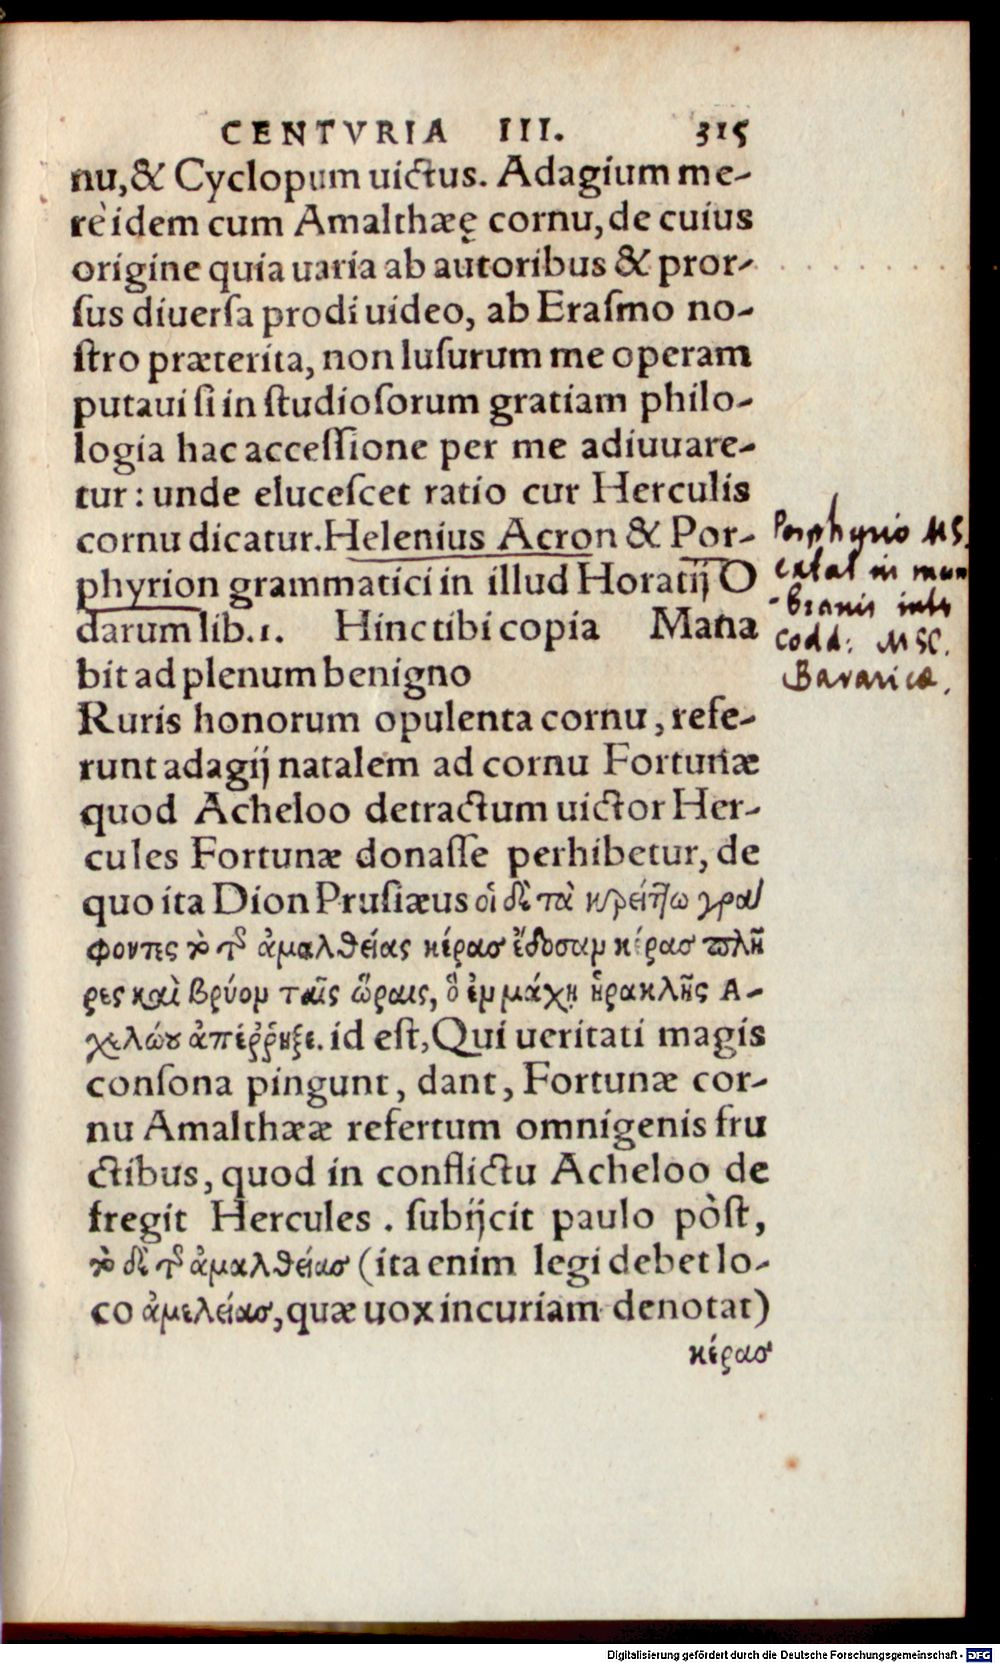 CENTVRIA III. 315
nu, & Cyclopum uictus. Adagium me-
rè idem cum Amalthææ̨ cornu, de cuius
origine quia uaria ab autoribus & pror-
sus diuersa prodi uideo, ab Erasmo no-
stro præterita, non lusurum me operam
putaui si in studiosorum gratiam philo-
logia hac accessione per me adiuuare-
tur: unde elucescet ratio cur Herculis
cornu dicatur. Helenius Acron & Por-
phyrion grammatici in illud Horatij O
darum lib. 1. Hinc tibi copia Mana
bit ad plenum benigno
Ruris honorum opulenta cornu, refe-
runt adagij natalem ad cornu Fortunæ
quod Acheloo detractum uictor Her-
cules Fortunæ donasse perhibetur, de
quo ita Dion Prusiæus οἱ δὲ τὰ κρείττω γρά
φοντες τὸ τῆς ἀμαλθείας κέρας ἔδοσαν κέρας πλῆ
ρες καὶ βρύον ταῖς ὥραις, ὃ ἐν μάχῃ ἡρακλῆς Α-
χελώου ἀπέῤῥηξε. id est, Qui ueritati magis
consona pingunt, dant, Fortunæ cor-
nu Amalthææ refertum omnigenis fru
ctibus, quod in conflictu Acheloo de
fregit Hercules. subijcit paulo pòst,
τὸ δὲ τῆς ἀμαλθείας (ita enim legi debet lo-
co ἀμελείας, quæ uox incuriam denotat)
κέρας
Porphyrio MS.
extat in mem
-branis inter
Codd: MSC.
Bavaricæ.
Digitalisierung gefördert durch die Deutsche Forschungsgemeinschaft - DFG